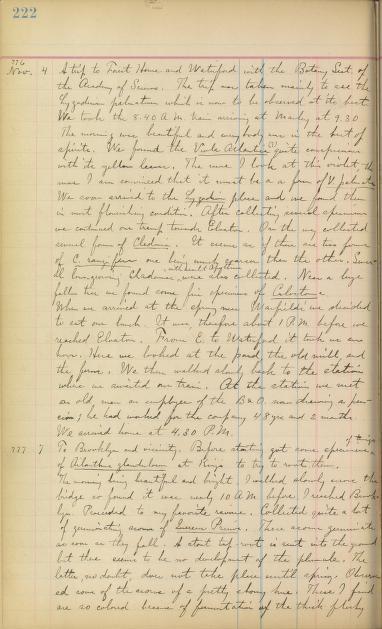 222
776
Nov. 4 A trip to Fruit House and Waterford with the Botany Sect. of
the Academy of Science. The trip was taken mainly to see the
Lygodium palmatum which is now to be observed at its best.
We took the 8.40 A.M. train arriving at Manley at 9.30
The morning was beautiful and everybody was in the best of
spirits. We found the Viola Atlantic (?) quite conspicuous
with its yellow leaves. The more I look at this violet, the
more I am convinced that it must be a form of V. palmata
We soon arrived to the Lygodium place and we found them
in most flourishing condition. After collecting several specimens
we continued our tramp towards Elberton. On the way collected
several forms of Cladonia. It seems as if there are two forms
of C. rangifer one being much coarser than the other.
were also collected. Near a large
fallen tree we found some fine specimens of
When we arrived at the we decided
to eat our lunch. It was, therefore about 1 P.M. before we
reached Elberton. From E. to Waterford it took us an
hour. Here we looked at the pond, the old mill, and
the farm. We then walked slowly back to the station
where we awaited our train. At the station we met
an old man an employee of the B & O. now drawing a pen-
sion; he had worked for the company 48 yrs and 2 months.
We arrived home at 4.30 P.M.
777 7 To Brooklyn and vicinity. Before starting got some specimens of
of Ailanthus glandulosa at to try to root them.
The morning being beautiful and bright I walked slowly across the
bridge so found it was nearly 10 A.M. before I reached Brook-
lyn. Proceeded to my favorite ravine. Collected quite a lot
of germinating acorns of Quercus Prinus. These acorns germinate
as soon as they fall. A stout tap root is sent into the ground
but there seems to be no development of the plumule. The
latter, no doubt, does not take place until spring. Observ-
ed some of the acorns of a pretty cherry hue. These I find
are so colored because of fermentation of the thick fleshy